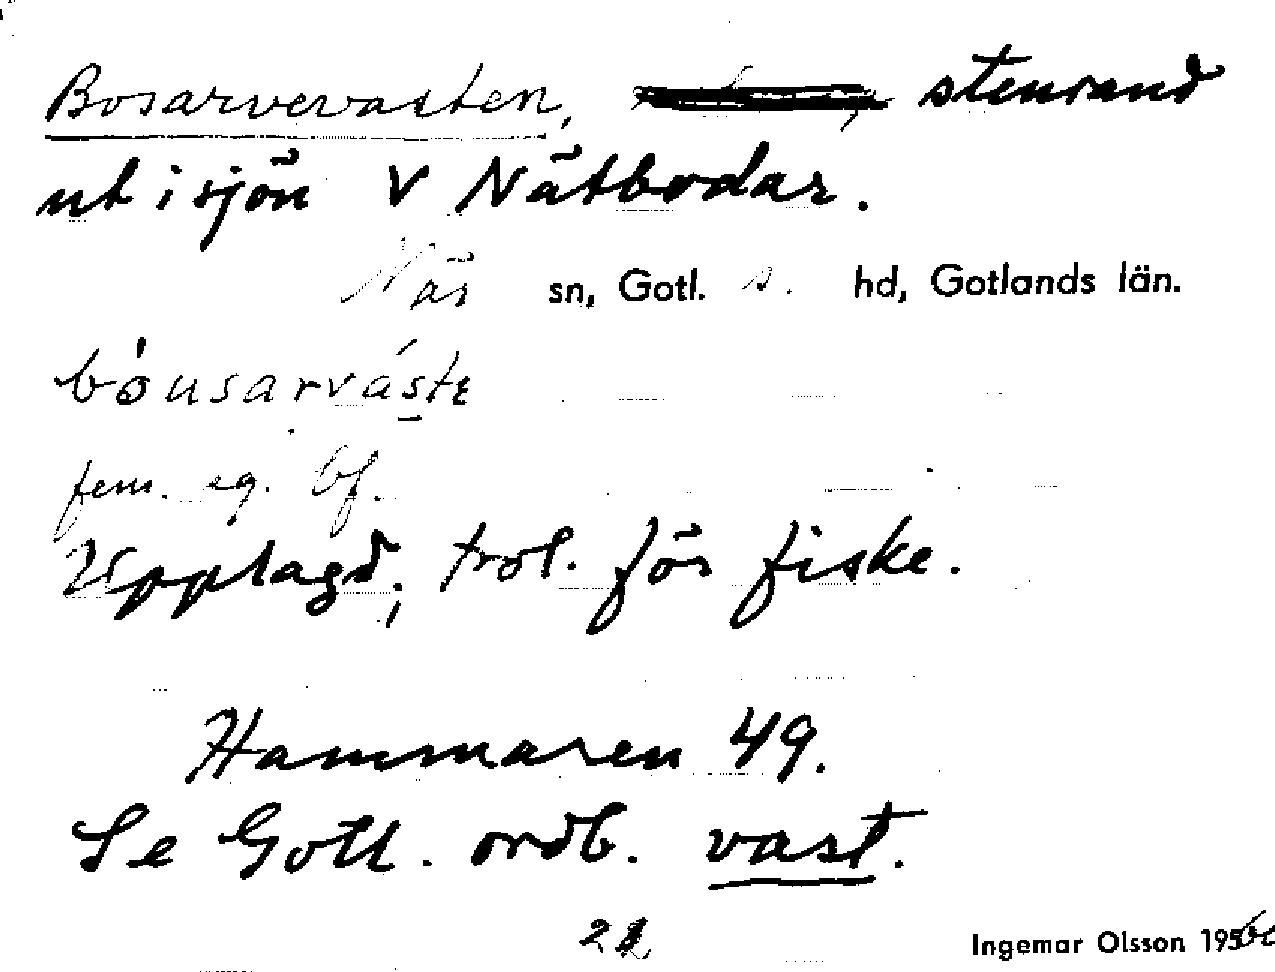 Bosarvevasten, stenrand
ut i sjön V Nätbodar.
När sn, Gotl. s. hd, Gotlands län.
bóusarváste
fem. sg. bf.
Upplagd; trol. för fiske.
Hammaren 49.
Se Gotl. ordb. vast.
Ingemar Olsson 195